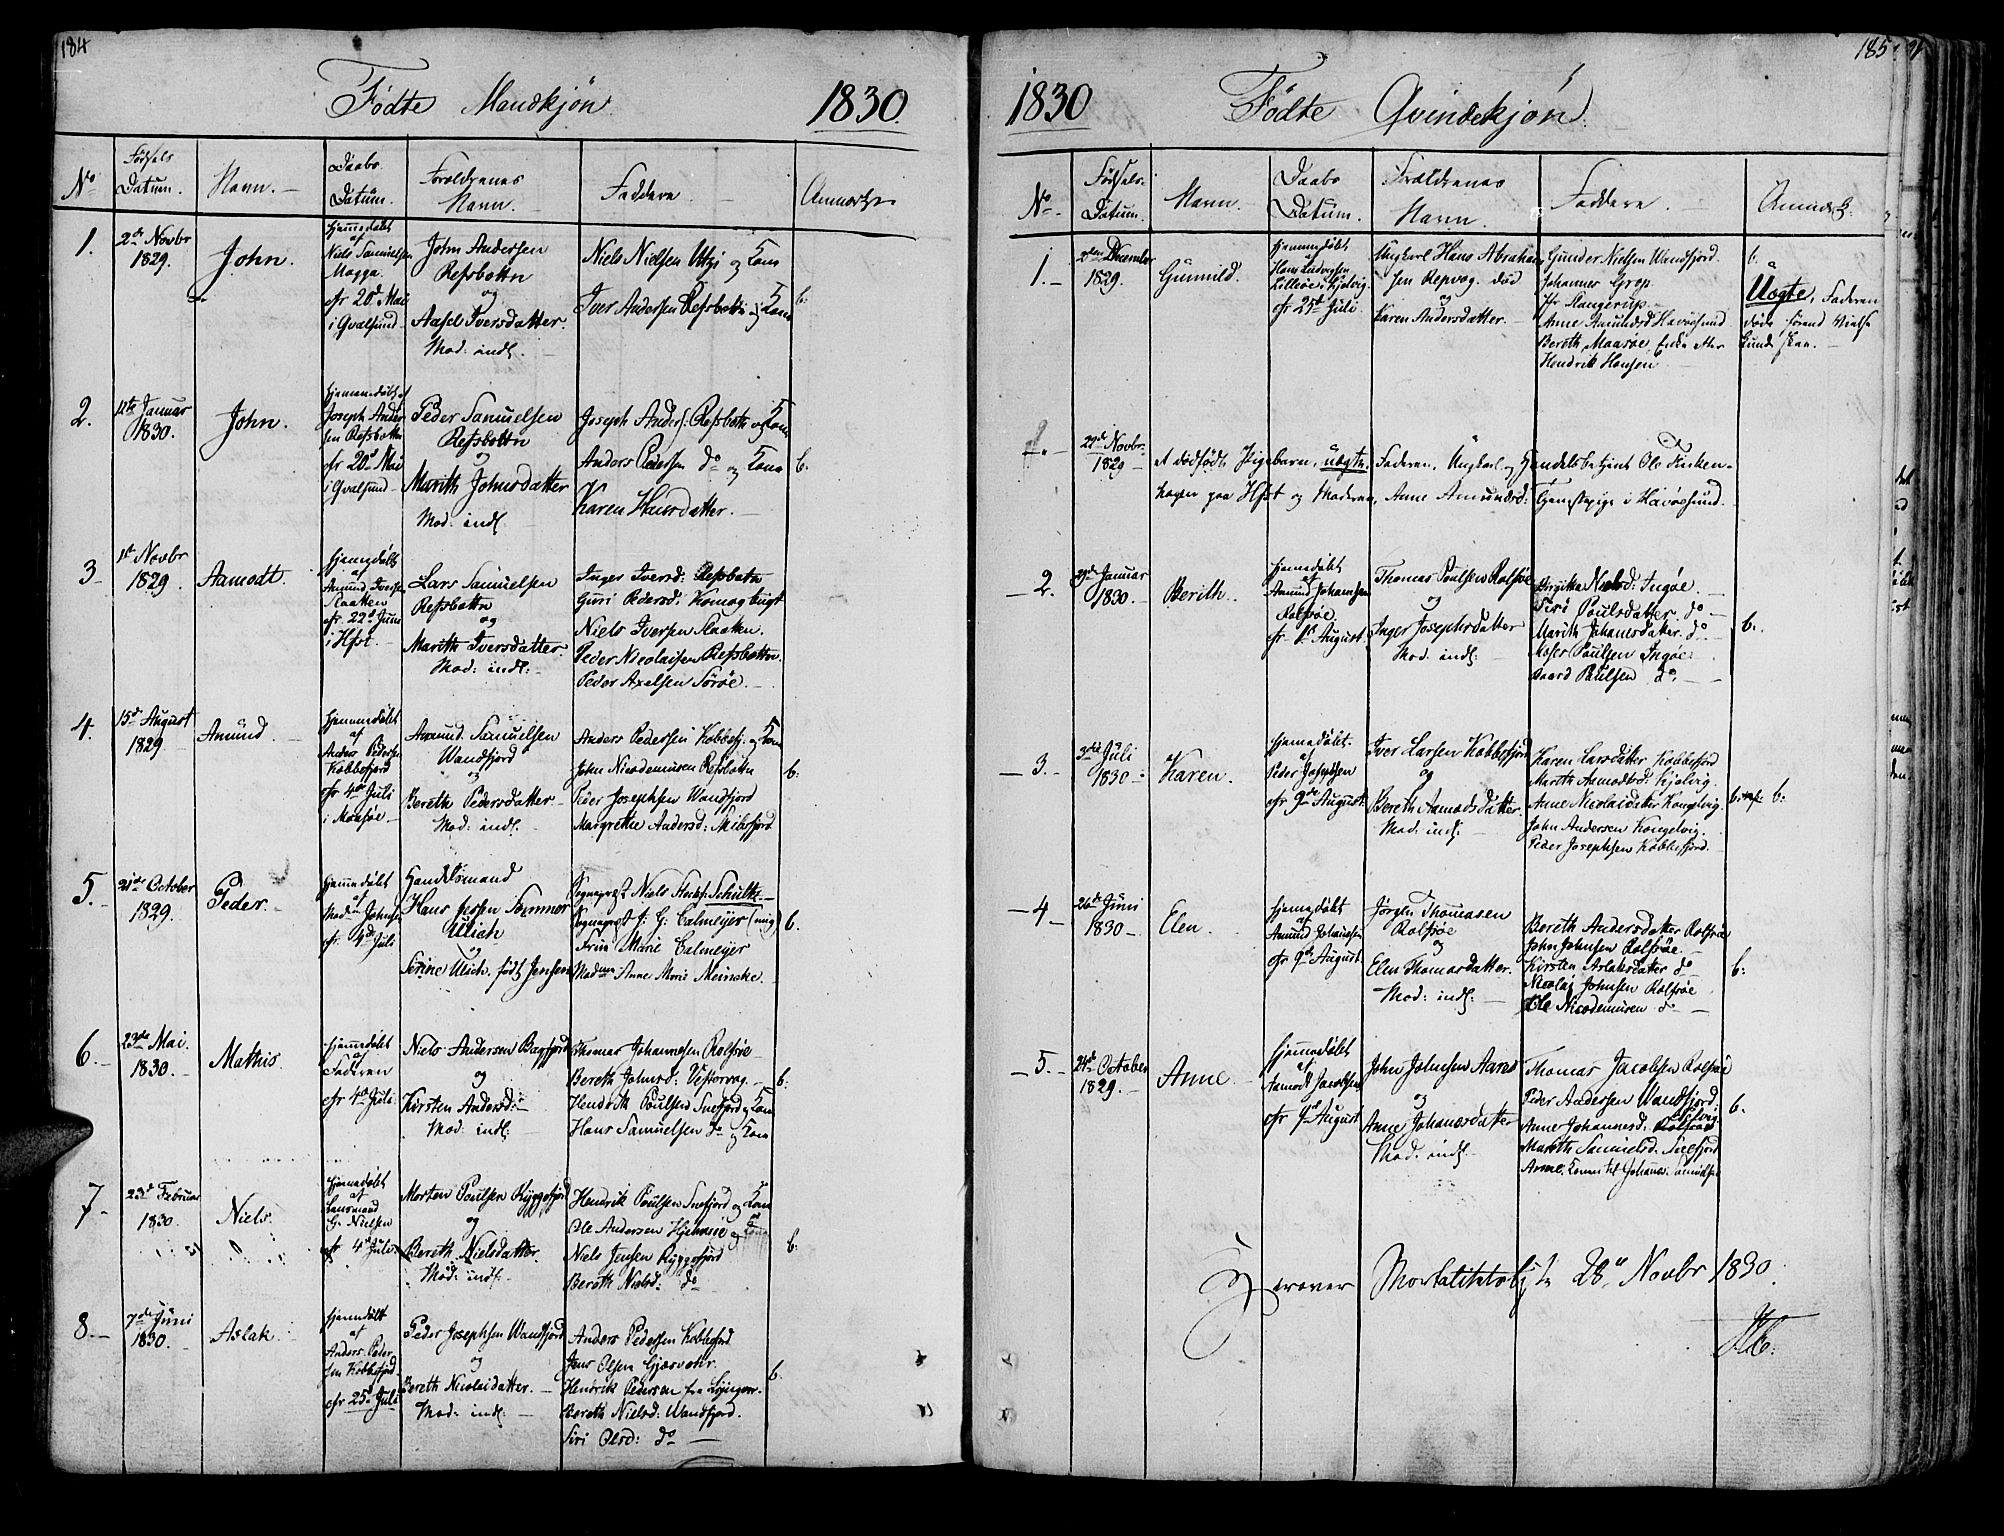 184
Fødte Mandkjøn 1830.
No
Fødsels Datum.
Navn.
Daabs Datum.
Forældrenes Navn.
Faddere
Anmærkn
1.
2d Novbr 1829.
John.
Hjemmedøbt af
Niels Samuelsen
Magga.
cfr 20d Mai
i Qvalsund
John Andersen
Refsbotten
og
Aasel Iversdatter.
Mod: indl.
Niels Nielsen og Kone
Iver Andersen Refsbotten og Kone
b:
2.
12te Januar 1830.
John.
Hjemmedøbt af
Joseph Andersen
Refsbotten
cfr 20d Mai
i Qvalsund
Peder Samuelsen
Refsbotten
og
Marith Johnsdatter
Mod: indl.
Joseph Anders: Refsbotten og Kone
Anders Pedersen do og Kone
Karen Hansdatter.
b.
3
1st Novbr 1829
Aamodt.
Hjemmedøbt af
Amund Iversen
Klaatten
cfr 22d Juni
i Hfst
Lars Samuelsen
Refsbotten
og
Marith Iversdatter.
Mod: indl:
Inger Iversd: Refsbotn
Guri Pedersd: Komagbugt
Niels Iversen Klaatten.
Peder Nicolaisen Refsbotten
Peder Axelsen Sørøe.
4.
15d August 1829
Amund
Hjemmedøbt af
Anders Pedersen
Kobbefjord
cfr 4d Juli
i Maasøe
Amund Samuelsen
Wandfjord
og
Bereth Pedersdatter
Mod: indl.
Anders Pedersen Kobbefj. og Kone
John Nicodemusen Refsbotten
Peder Josephsen Wandfjord
Margrethe Andersd: Mikefjord
b:
5.
21de October 1829.
Peder.
Hjemmedøbt af
Madm Johnsen
cfr 4d Juli
Handelsmand
Hans Jessen Sommer
Ulich
og
Serine Ulich, født Jensen
Sognepræst Niels Stockfl. Schultz
Sognepræst J. G. Calmeyer (mig)
Frue Marie Calmeyer
Madme Anne Marie Meinske.
b.
6.
23de Mai. 1830.
Mathis.
Hjemmedøbt af
Faderen
cfr 4d Juli
Niels Andersen Bagfjord
og
Kirsten Andersd:
Mod: indl:
Thomas Johannesen Rolfsøe
Bereth Johnsd: Vestervog.
Hendrik Poulsen Snefjord og Kone
Hans Samuelsen do og Kone
b:
7.
23d Februar 1830.
Niels.
Hjemmedøbt af
Lensmand
G. Nielsen
cfr 4d Juli
Morten Poulsen Ryggefjord
og
Bereth Nielsdatter.
Mod: indl.
Hendrik Poulsen Snefjord og Kone
Ole Andersen Hjelmsøe og Kone
Niels Jensen Ryggefjord
Bereth Nielsd: do
b:
8.
7de Juni 1830.
Aslak
Hjemmedøbt af
Anders Pedersen
Kobbefjord
cfr 25d Juli
Peder Josephsen Wandfjord
og
Bereth Nicolaidatter.
Mod: indl:
Anders Pedersen Kobbefjord
Jens Olsen Gjæsvær.
Hendrik Pedersen fra Lyngen.
Bereth Nielsd: Wandfjord.
Siri Olsd: do
b.
185.
1830 Fødte Qvindekjøn.
No
Fødsels Datum.
Navn.
Daabs Datum.
Forældrenes Navn.
Faddere
Anmærkn.
1.
December 1829.
Gunnild.
Hjemmedøbt af
Hans Andersen
Lillefjord
cfr 25d Juli
Ungkarl Hans Abrahamsen
Repvog. død
og
Karen Andersdatter.
Gunder Nielsen Wandfjord.
Johannes Grep.
Anne Amundsd. Havøesund
Bereth Maasøe, Enke efter
Hendrik Hansen
b.
Uægte, Faderen
døde førend Vielse
kunde skee.
22d Novbr 1829
et dødfødt Pigebarn, uægte. Faderen, Ungkarl og Handelsbetjent Ole Finkenhagen paa Hfst og Moderen, Anne Amundsd: Tjenestepige i Havøesund.
2.
29d Januar 1830.
Berith.
Hjemmedøbt af
Amund Johannsen
Rolfsøe.
cfr 1st August
Thomas Poulsen Rolfsøe
og
Inger Josephsdatter
Mod: indl:
Birgitha Nielsd: Ingøe.
Siri Poulsdatter do
Marith Johansdatter. do
Moses Poulsen Ingøe
Baard Poulsen do
b.
3.
3die Juli 1830
Karen.
Hjemmedøbt af
Peder Josephsen
cfr 9de August
Iver Larsen Kobbefjord
og
Bereth Aamodsdatter
Mod: indl:
Karen Larsdatter Kobbefjord
Marith Aamodsd: Gjelvig.
Anne Nicolaidatter Kongelvig
John Andersen Kongelvig.
Peder Josephsen Kobbefjord.
b:
4
26d Juni 1830
Elen.
Hjemmedøbt af
Amund Johansen
cfr 9d August
Jørgen Thomasen
Rolfsøe
og
Elen Thomasdatter.
Mod: indl:
Bereth Andersdatter Rolfsøe
John Johnsen Rolfsøe.
Kirsten Aslaksdatter do
Nicolai Johnsen Rolfsøe
Ole Nicodemusen do
b:
5.
24d October 1829.
Anne
Hjemmedøbt af
Aamodt Jacobsen
cfr 9d August
John Johnsen Aarøe
og
Anne Johanesdatter
Mod: indl.
Thomas Jacobsen Rolfsøe
Peder Andersen Wandfjord:
Anne Johannesd: Rolfsøe
Mareth Samuelsd: Snefjord
Anne, Konen til Johanes Amundsen
b.
Herover Mortalitetsl. 28d Novbr 1830.